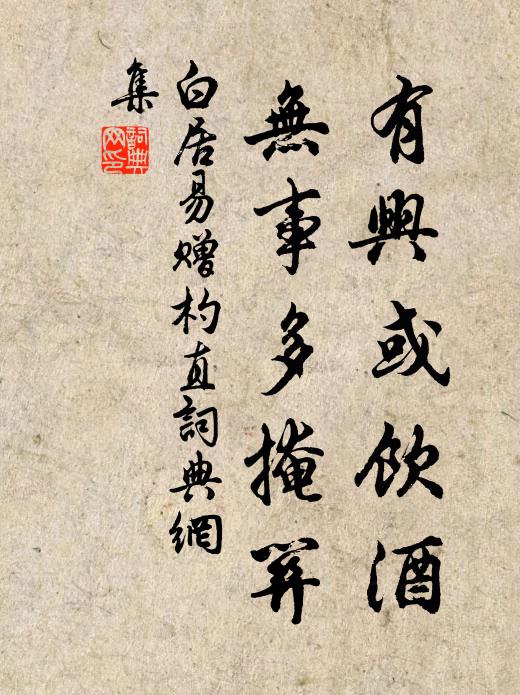 有興或飲酒
無事多掩關
白居易贈杓直詞典網
集
詞典
网印